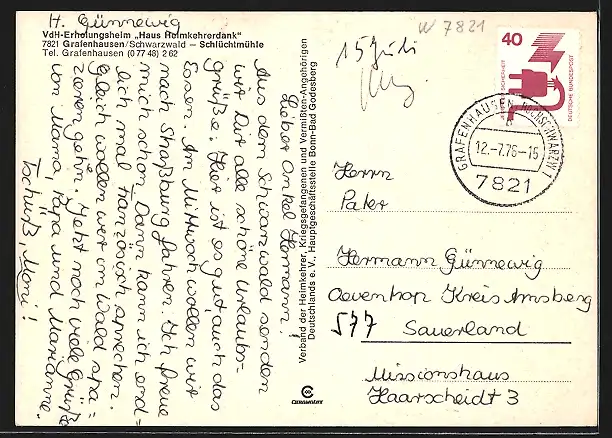 H. Günnewig
VdH-Erholungsheim „Haus Heimkehrerdank“
7821 Grafenhausen/Schwarzwald – Schlüchtmühle
Tel. Grafenhausen (0 77 48) 2 62
Lieber Onkel Hermann!
Aus dem Schwarzwald senden
wir Dir alle schöne Urlaubs-
grüße. Hier ist es gut, auch das
Essen. Am Mittwoch wollen wir
nach Straßburg fahren. Ich freue
mich schon. Dann kann ich end=
lich mal französisch sprechen.
Gleich wollen wir im Wald spa=
zieren gehn. Jetzt noch viele Grüße
von Mama, Papa und Marianne.
Tschüß, Moni!
Verband der Heimkehrer, Kriegsgefangenen und Vermißten-Angehörigen
Deutschlands e. V., Hauptgeschäftsstelle Bonn-Bad Godesberg
CEKAWERT
W 7821
15 Juli
40
DEUTSCHE BUNDESPOST
GRAFENHAUSEN, HOCHSCHWARZW
12.-7.76-15
7821
Herrn
Pater
Hermann Günnewig
Oeventrop Kreis Arnsberg
577 Sauerland
Missionshaus
Haarscheidt 3